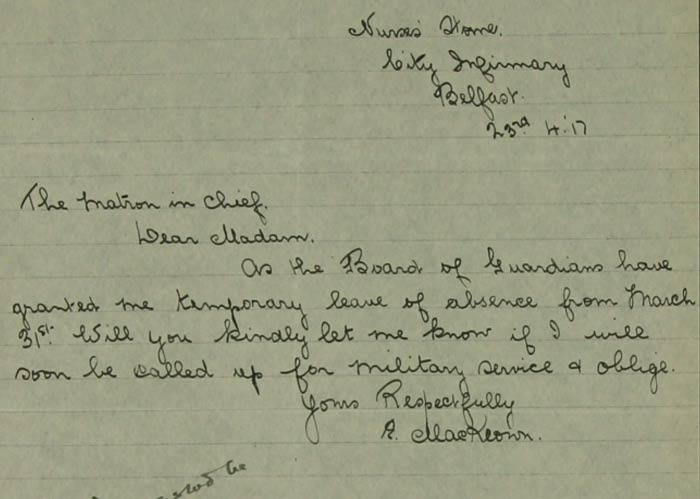 Nurses' Home.
City Infirmary
Belfast.
23rd 4.17
The Matron in Chief.
Dear Madam.
As the Board of Guardians have
granted me temporary leave of absence from March
31st. Will you kindly let me know if I will
soon be called up for military service & oblige.
Yours Respectfully
A. MacKeown.
be